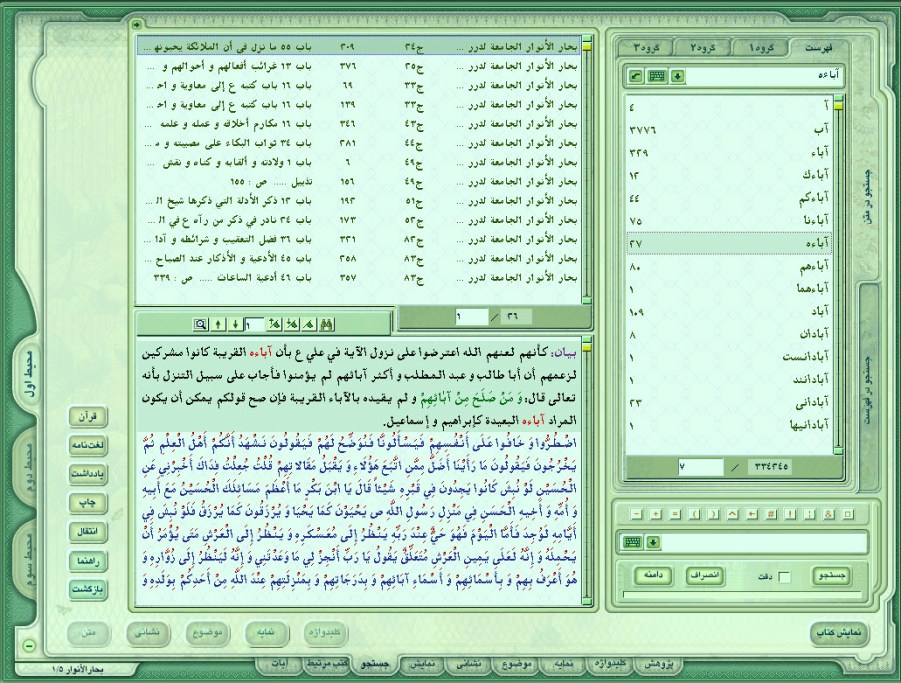 فهرست
گروه۱
گروه۲
گروه۳
آباءه
آ ٤
آب ٣٧٧٦
آباء ٣٣٩
آباءك ١٢
آباءكم ٤٤
آباءنا ٧٥
آباءه ٢٧
آباءهم ٨٠
آباءهما ١
آباد ١٠٩
آبادان ٨
آبادانست ١
آبادانند ١
آبادانى ٢٣
آبادانيها ١
٧ / ٣٣٤٣٤٥
جستجو در متن
جستجو در فهرست
بحار الأنوار الجامعة لدرر ... ج٣٤ ٣٠٩ باب ٥٥ ما نزل في أن الملائكة يحبونهم ...
بحار الأنوار الجامعة لدرر ... ج٣٥ ٣٧٦ باب ١٣ غرائب أفعالهم و أحوالهم و ...
بحار الأنوار الجامعة لدرر ... ج٣٣ ٦٩ باب ١٦ باب كتبه ع إلى معاوية و احـ ...
بحار الأنوار الجامعة لدرر ... ج٣٣ ١٣٩ باب ١٦ باب كتبه ع إلى معاوية و احـ ...
بحار الأنوار الجامعة لدرر ... ج٤٣ ٣٤٦ باب ١٦ مكارم أخلاقه و عمله و علمه ...
بحار الأنوار الجامعة لدرر ... ج٤٤ ٢٨١ باب ٣٤ ثواب البكاء على مصيبته و مـ ...
بحار الأنوار الجامعة لدرر ... ج٤٩ ٦ باب ١ ولادته و ألقابه و كناه و نقش ...
بحار الأنوار الجامعة لدرر ... ج٤٩ ١٥٦ تذييل ..... ص : ١٥٥
بحار الأنوار الجامعة لدرر ... ج٥١ ١٩٣ باب ١٢ ذكر الأدلة التي ذكرها شيخ الـ ...
بحار الأنوار الجامعة لدرر ... ج٥٣ ١٧٣ باب ٢٤ نادر في ذكر من رآه ع في الـ ...
بحار الأنوار الجامعة لدرر ... ج٨٢ ٣٢١ باب ٣٦ فضل التعقيب و شرائطه و آدا ...
بحار الأنوار الجامعة لدرر ... ج٨٣ ٢٥٨ باب ٤٥ الأدعية و الأذكار عند الصباح ...
بحار الأنوار الجامعة لدرر ... ج٨٣ ٣٥٧ باب ٤٦ أدعية الساعات ..... ص : ٣٣٩
١ / ٢٦
١
بيان: كأنهم لعنهم الله اعترضوا على نزول الآية في علي ع بأن آباءه القريبة كانوا مشركين
لزعمهم أن أبا طالب و عبد المطلب و أكثر آبائهم لم يؤمنوا فأجاب على سبيل التنزل بأنه
تعالى قال: وَ مَنْ صَلَحَ مِنْ آبائِهِمْ و لم يقيده بالآباء القريبة فإن صح قولكم يمكن أن يكون
المراد آباءه البعيدة كإبراهيم و إسماعيل.
اضْطُرُّوا وَ خَافُوا عَلَى أَنْفُسِهِمْ فَيَسْأَلُونَّا فَنُوَضِّحُ لَهُمْ فَيَقُولُونَ نَشْهَدُ أَنَّكُمْ أَهْلُ الْعِلْمِ ثُمَّ
يَخْرُجُونَ فَيَقُولُونَ مَا رَأَيْنَا أَضَلَّ مِمَّنِ اتَّبَعَ هَؤُلَاءِ وَ يَقْبَلُ مَقَالاتِهِمْ قُلْتُ جُعِلْتُ فِدَاكَ أَخْبِرْنِي عَنِ
الْحُسَيْنِ لَوْ نُبِشَ كَانُوا يَجِدُونَ فِي قَبْرِهِ شَيْئاً قَالَ يَا ابْنَ بَكْرٍ مَا أَعْظَمَ مَسَائِلَكَ الْحُسَيْنُ مَعَ أَبِيهِ
وَ أُمِّهِ وَ أَخِيهِ الْحَسَنِ فِي مَنْزِلِ رَسُولِ اللَّهِ ص يُحْيَوْنَ كَمَا يُحْيَا وَ يُرْزَقُونَ كَمَا يُرْزَقُ فَلَوْ نُبِشَ فِي
أَيَّامِهِ لَوُجِدَ فَأَمَّا الْيَوْمَ فَهُوَ حَيٌّ عِنْدَ رَبِّهِ يَنْظُرُ إِلَى مُعَسْكَرِهِ وَ يَنْظُرُ إِلَى الْعَرْشِ مَتَى يُؤْمَرُ أَنْ
يَحْمِلَهُ وَ إِنَّهُ لَعَلَى يَمِينِ الْعَرْشِ مُتَعَلِّقٌ يَقُولُ يَا رَبِّ أَنْجِزْ لِي مَا وَعَدْتَنِي وَ إِنَّهُ لَيَنْظُرُ إِلَى زُوَّارِهِ وَ
هُوَ أَعْرَفُ بِهِمْ وَ بِأَسْمَائِهِمْ وَ أَسْمَاءِ آبَائِهِمْ وَ بِدَرَجَاتِهِمْ وَ بِمَنْزِلَتِهِمْ عِنْدَ اللَّهِ مِنْ أَحَدِكُمْ بِوَلَدِهِ وَ
جستجو
دقت
انصراف
دامنه
نمايش كتاب
محيط اول
محيط دوم
محيط سوم
قرآن
لغت‌نامه
يادداشت
چاپ
انتقال
راهنما
بازگشت
كليدواژه
نمايه
موضوع
نشانى
متن
پژوهش
كليدواژه
نمايه
موضوع
نشانى
نمايش
جستجو
كتب مرتبط
آيات
بحارالأنوار ١/٥